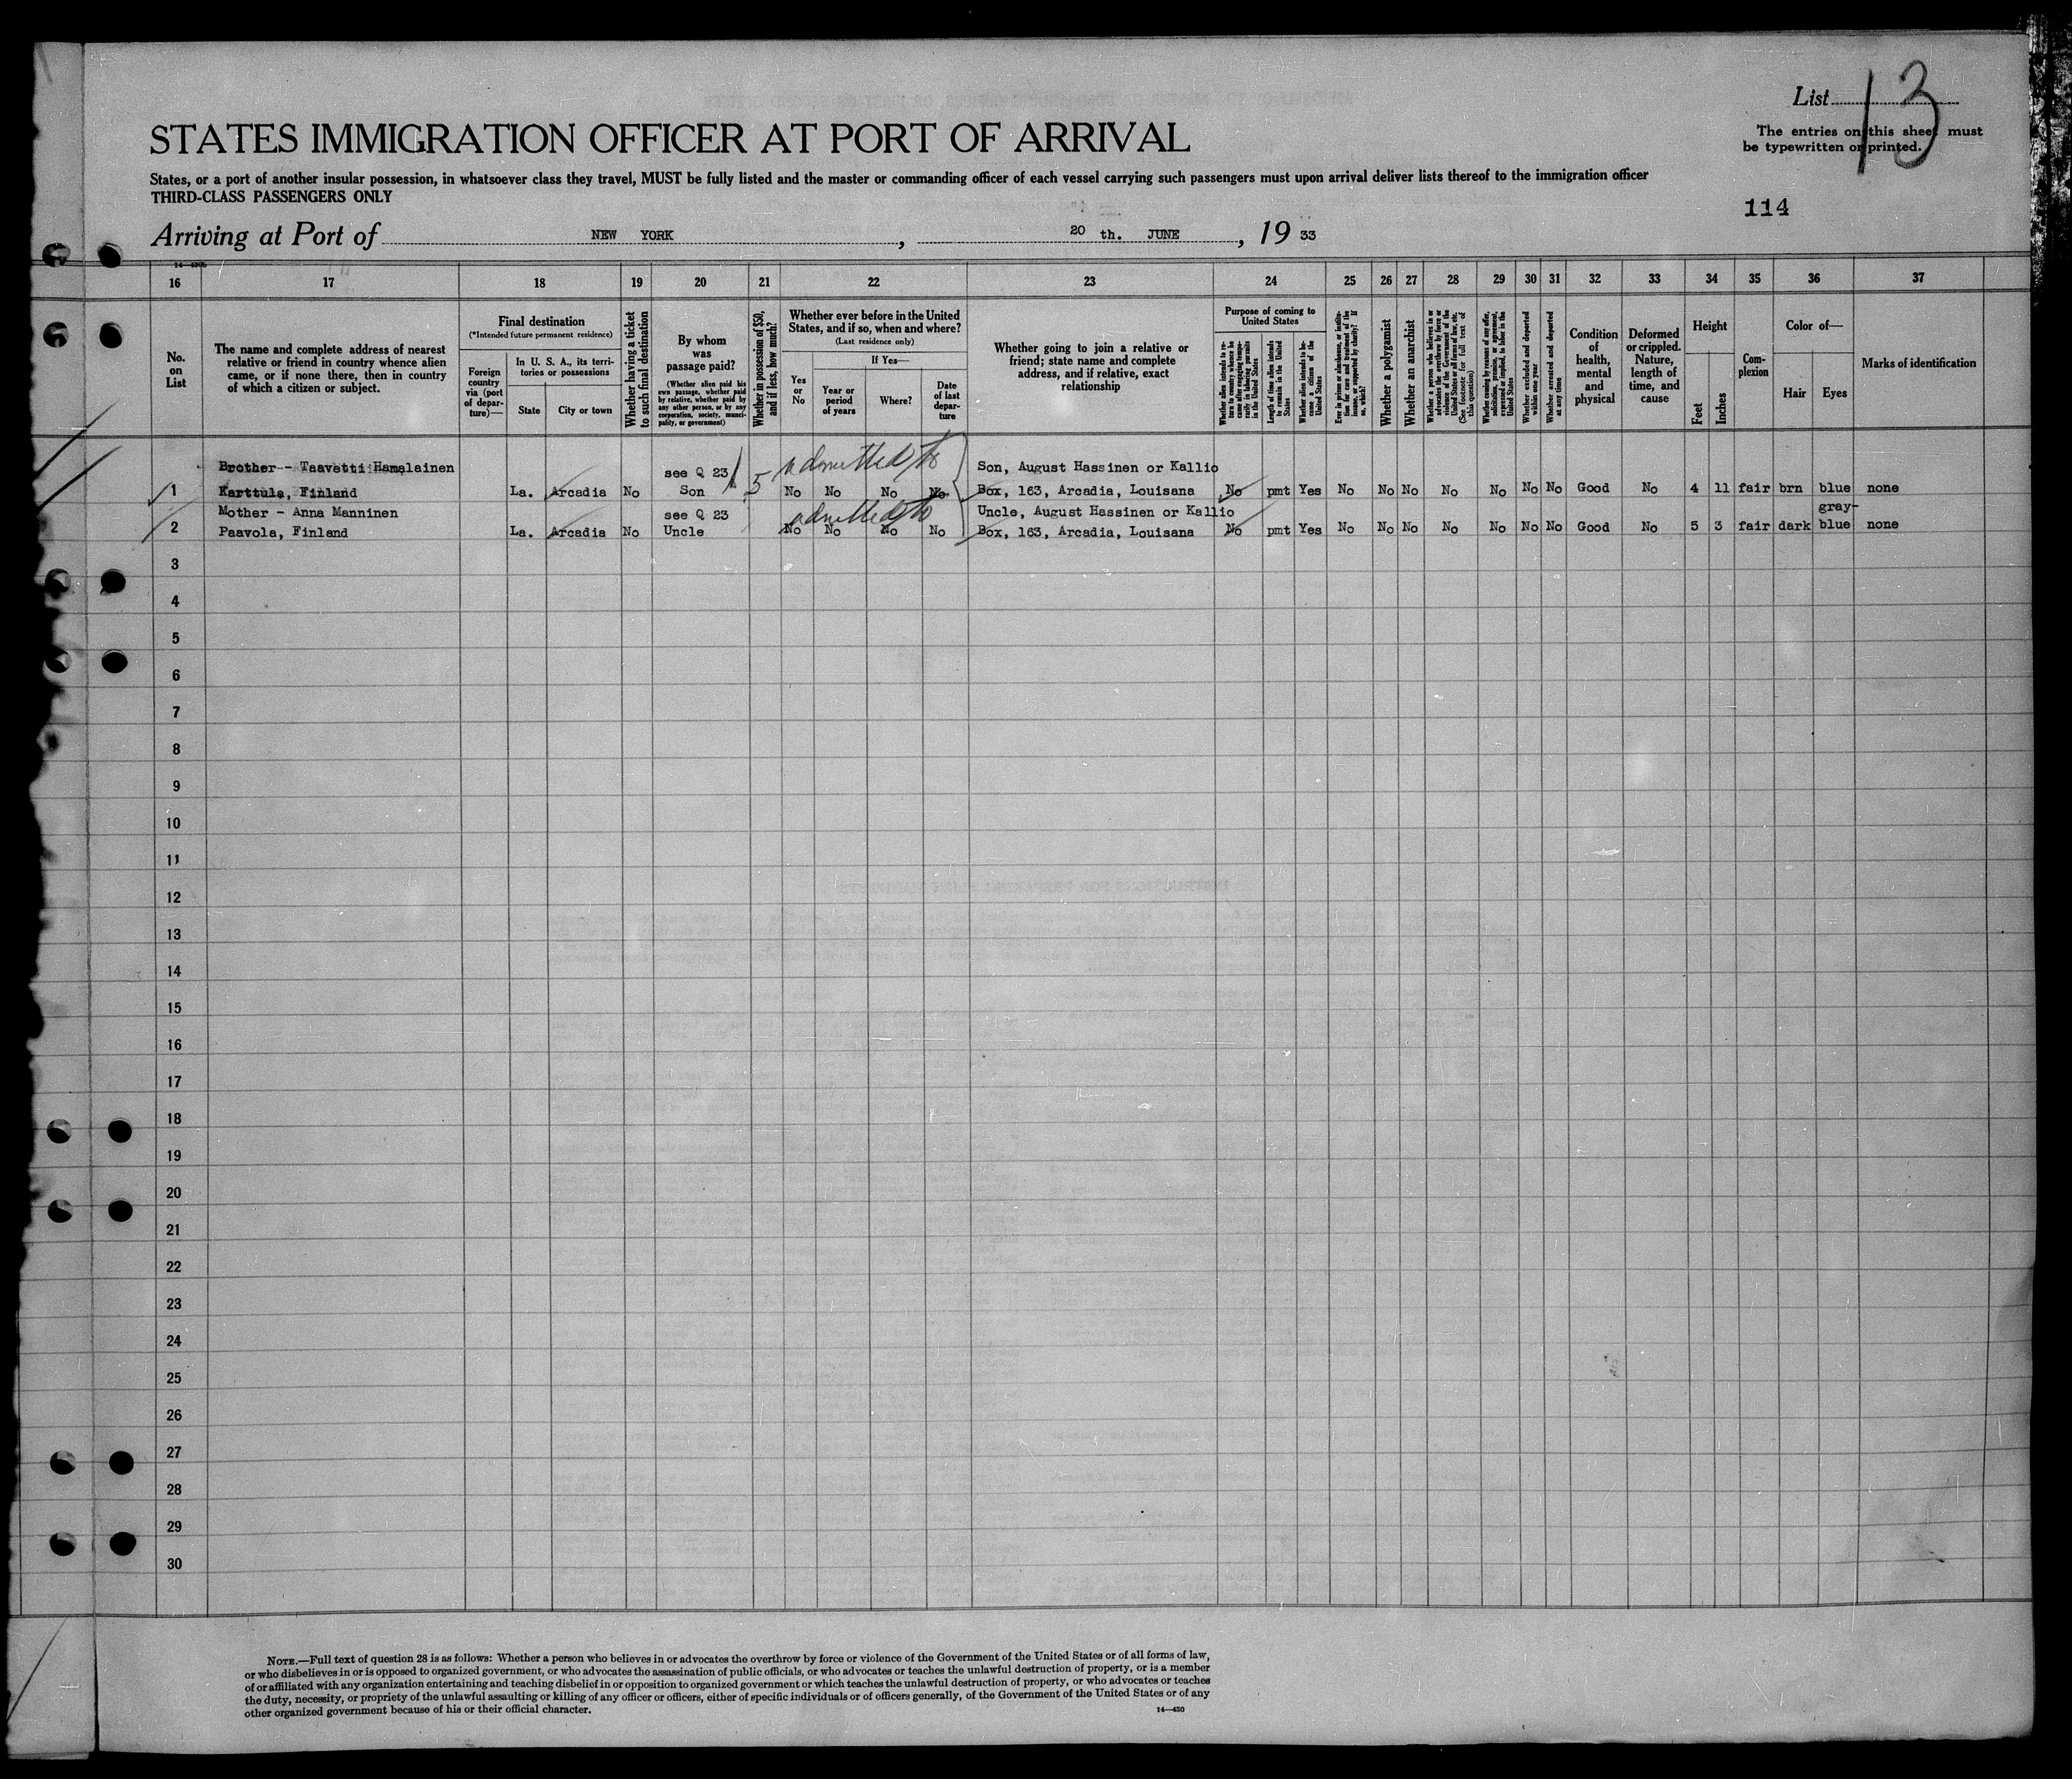 List 13
STATES IMMIGRATION OFFICER AT PORT OF ARRIVAL
The entries on this sheet must
be typewritten or printed.
States, or a port of another insular possession, in whatsoever class they travel, MUST be fully listed and the master or commanding officer of each vessel carrying such passengers must upon arrival deliver lists thereof to the immigration officer
THIRD-CLASS PASSENGERS ONLY
114
Arriving at Port of NEW YORK, 20 th. JUNE, 19 33
16 17 18 19 20 21 22 23 24 25 26 27 28 29 30 31 32 33 34 35 36 37
No. on List
The name and complete address of nearest
relative or friend in country whence alien
came, or if none there, then in country
of which a citizen or subject.
Final destination
(*Intended future permanent residence)
Foreign country via (port of departure)—
In U. S. A., its territories or possessions
State
City or town
Whether having a ticket to such final destination
By whom was passage paid?
(Whether alien paid his own passage, whether paid by relative, whether paid by any other person, or by any corporation, society, municipality, or government)
Whether in possession of $50, and if less, how much?
Whether ever before in the United
States, and if so, when and where?
(Last residence only)
Yes or No
If Yes—
Year or period of years
Where?
Date of last departure
Whether going to join a relative or
friend; state name and complete
address, and if relative, exact
relationship
Purpose of coming to United States
Length of time alien intends to remain in the United States
Whether alien intends to become a citizen of the United States
Whether a polygamist
Whether an anarchist
Whether excluded and deported within one year
Whether arrested and deported at any time
Condition of health, mental and physical
Deformed or crippled. Nature, length of time, and cause
Height
Feet
Inches
Complexion
Color of—
Hair
Eyes
Marks of identification
admitted to
Brother - Taavetti Hamalainen see Q 23 Son, August Hassinen or Kallio
1 Karttula, Finland La. Arcadia No Son 5 No No No No Box, 163, Arcadia, Louisana No pmt Yes No No No No No No No Good No 4 11 fair brn blue none
admitted to
Mother - Anna Manninen see Q 23 Uncle, August Hassinen or Kallio gray-
2 Paavola, Finland La. Arcadia No Uncle No No No No Box, 163, Arcadia, Louisana No pmt Yes No No No No No No No Good No 5 3 fair dark blue none
3
4
5
6
7
8
9
10
11
12
13
14
15
16
17
18
19
20
21
22
23
24
25
26
27
28
29
30
NOTE.—Full text of question 28 is as follows: Whether a person who believes in or advocates the overthrow by force or violence of the Government of the United States or of all forms of law,
or who disbelieves in or is opposed to organized government, or who advocates the assassination of public officials, or who advocates or teaches the unlawful destruction of property, or is a member
of or affiliated with any organization entertaining and teaching disbelief in or opposition to organized government or which teaches the unlawful destruction of property, or who advocates or teaches
the duty, necessity, or propriety of the unlawful assaulting or killing of any officer or officers, either of specific individuals or of officers generally, of the Government of the United States or of any
other organized government because of his or their official character.
14—450